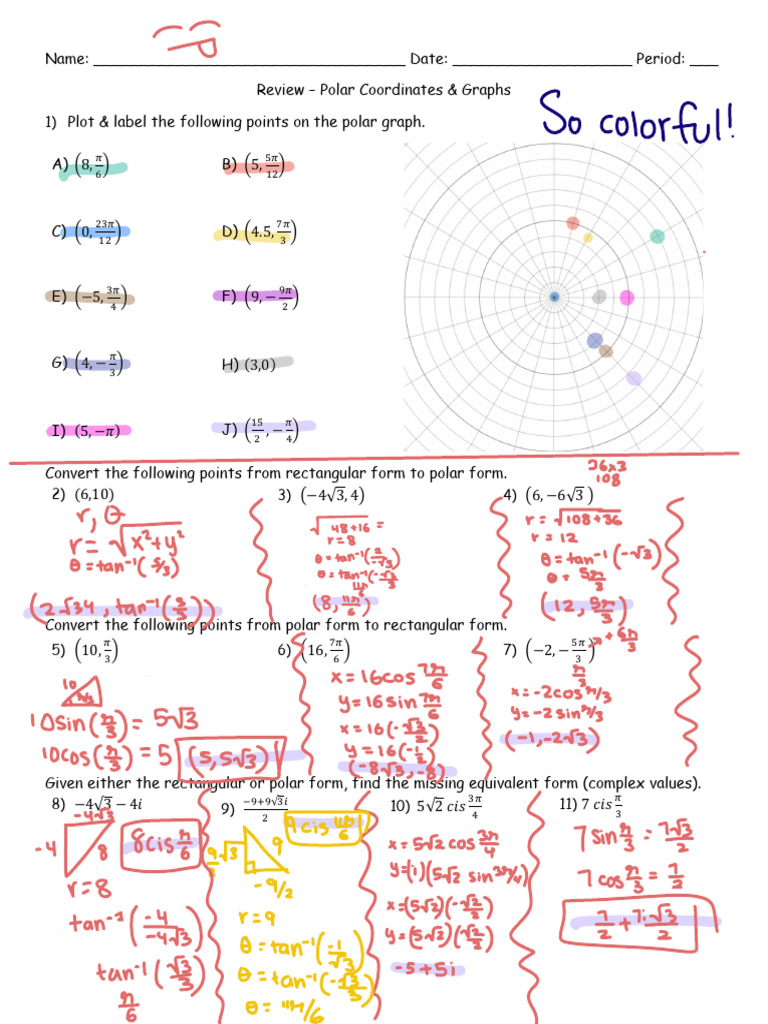 Name: ________________________________ Date: __________________ Period: ___
Review – Polar Coordinates & Graphs
So colorful!
1) Plot & label the following points on the polar graph.
A) (8, π/6) B) (5, 5π/12)
C) (0, 23π/12) D) (4.5, 7π/3)
E) (−5, 3π/4) F) (9, −9π/2)
G) (4, −π/3) H) (3,0)
I) (5, −π) J) (15/2, −π/4)
Convert the following points from rectangular form to polar form.
36×3
108
2) (6,10) 3) (−4√3, 4) 4) (6, −6√3 )
r, θ
r = √x²+y²
θ = tan⁻¹(5/3)
(2√34, tan⁻¹(5/3))
√48+16 =
r = 8
(8, 11π/6)
r = √108+36
r = 12
θ = tan⁻¹(−√3)
θ = 5π/3
(12, 5π/3)
Convert the following points from polar form to rectangular form.
5) (10, π/3) 6) (16, 7π/6) 7) (−2, −5π/3) + 6π/3
10
π/3
10sin(π/3) = 5√3
10cos(π/3) = 5 (5, 5√3)
x = 16cos 7π/6
y = 16sin 7π/6
x = 16(-√3/2)
y = 16(-1/2)
(-8√3, -8)
π/3
x = -2cos π/3
y = -2sin π/3
(-1, -2√3)
Given either the rectangular or polar form, find the missing equivalent form (complex values).
8) −4√3 − 4i 9) −9+9√3i/2 10) 5√2 cis 3π/4 11) 7 cis π/3
-4√3
-4 8
8cis π/6
r = 8
tan⁻¹(-4/-4√3)
tan⁻¹(√3/3)
π/6
9cis 11π/6
9/2√3 9
-9/2
r = 9
θ = tan⁻¹(-1/√3)
θ = tan⁻¹(-√3/3)
θ = 11π/6
x = 5√2 cos 3π/4
y = (i)(5√2 sin 3π/4)
x = (5√2)(-√2/2)
y = (5√2)(√2/2)
-5+5i
7 sin π/3 = 7√3/2
7 cos π/3 = 7/2
7/2 + 7i√3/2